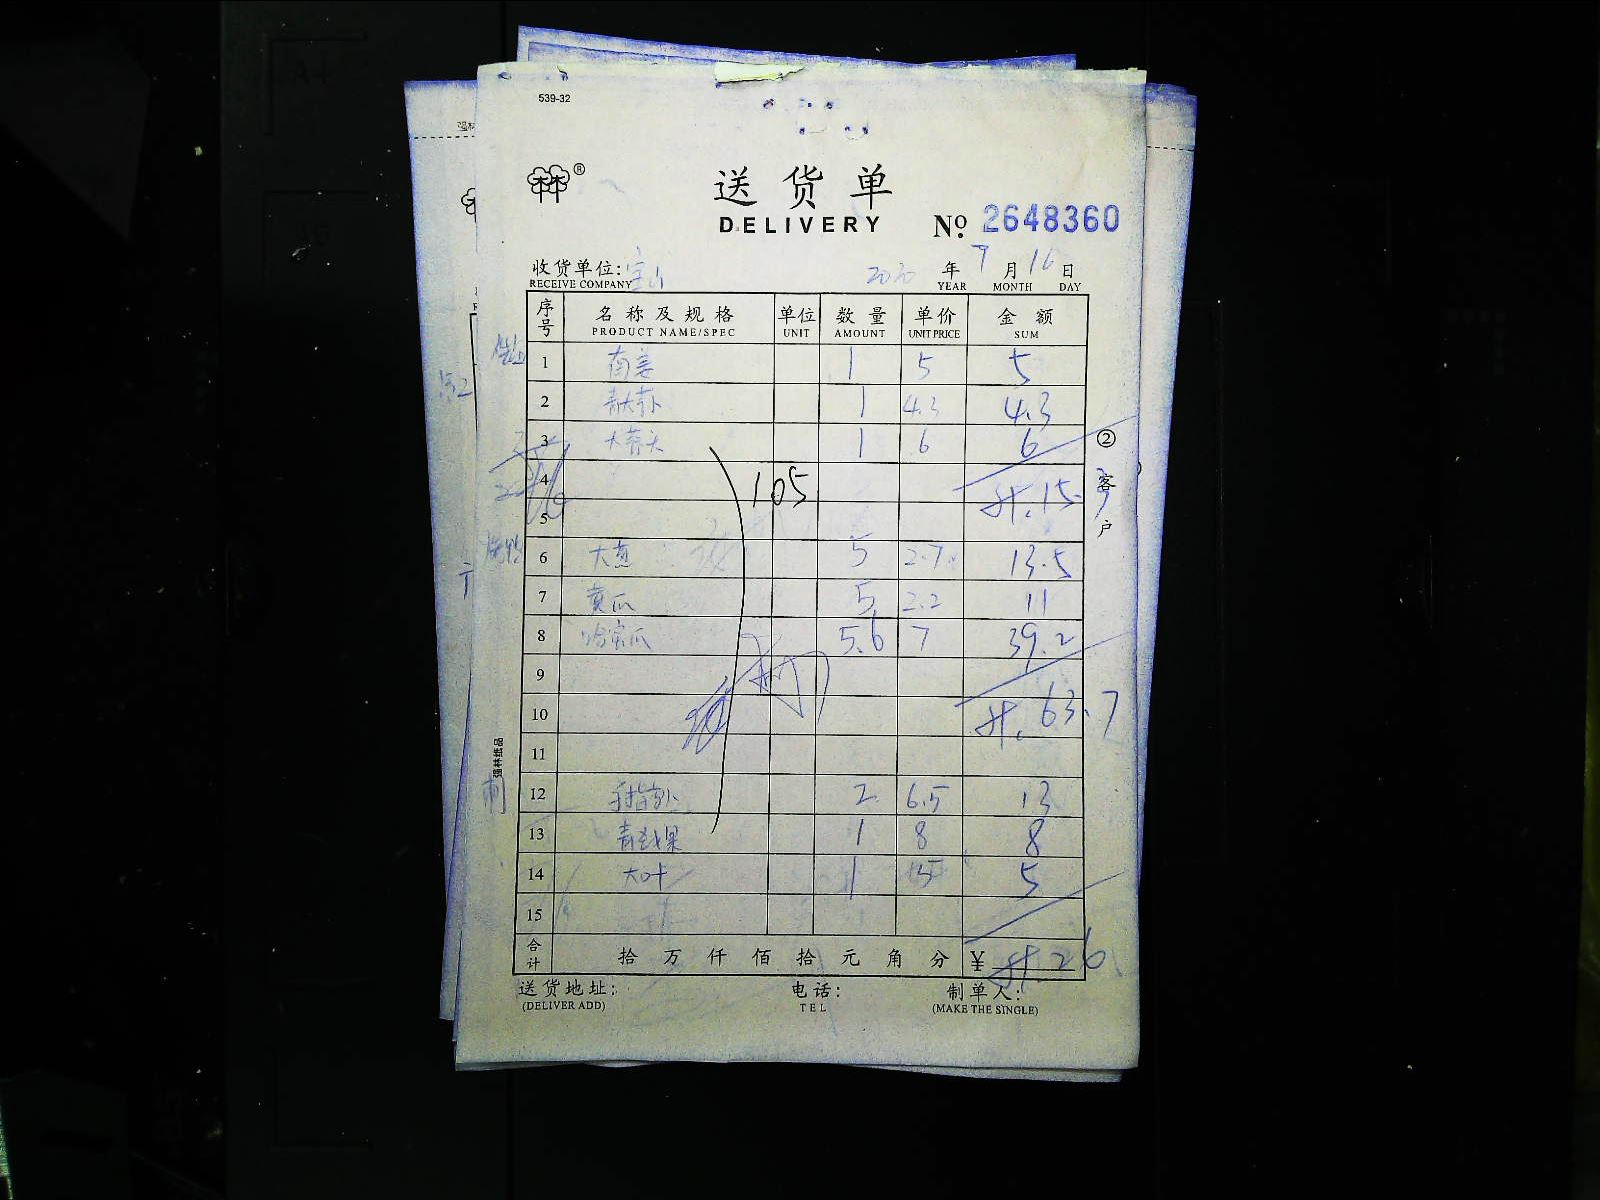 539-32
林®
送货单
DELIVERY
№ 2648360
收货单位: 宝山 2020 年 9 月 16 日
RECEIVE COMPANY YEAR MONTH DAY
序号 名称及规格 单位 数量 单价 金额
PRODUCT NAME/SPEC UNIT AMOUNT UNIT PRICE SUM
1 南姜 1 5 5
2 青大卜 1 4.3 4.3
3 大蒜头 1 6 6
4 105 计.15.3
5
6 大葱 5 2.7 13.5
7 黄瓜 5 2.2 11
8 哈密瓜 5.6 7 39.2
9
10 计.63.7
11
12 手指卜 2 6.5 13
13 青红果 1 8 8
14 大叶 1 5 5
15
合计 拾 万 仟 佰 拾 元 角 分 ¥ 计26
送货地址: 电话: 制单人:
(DELIVER ADD) TEL (MAKE THE SINGLE)
②客户
强林纸品